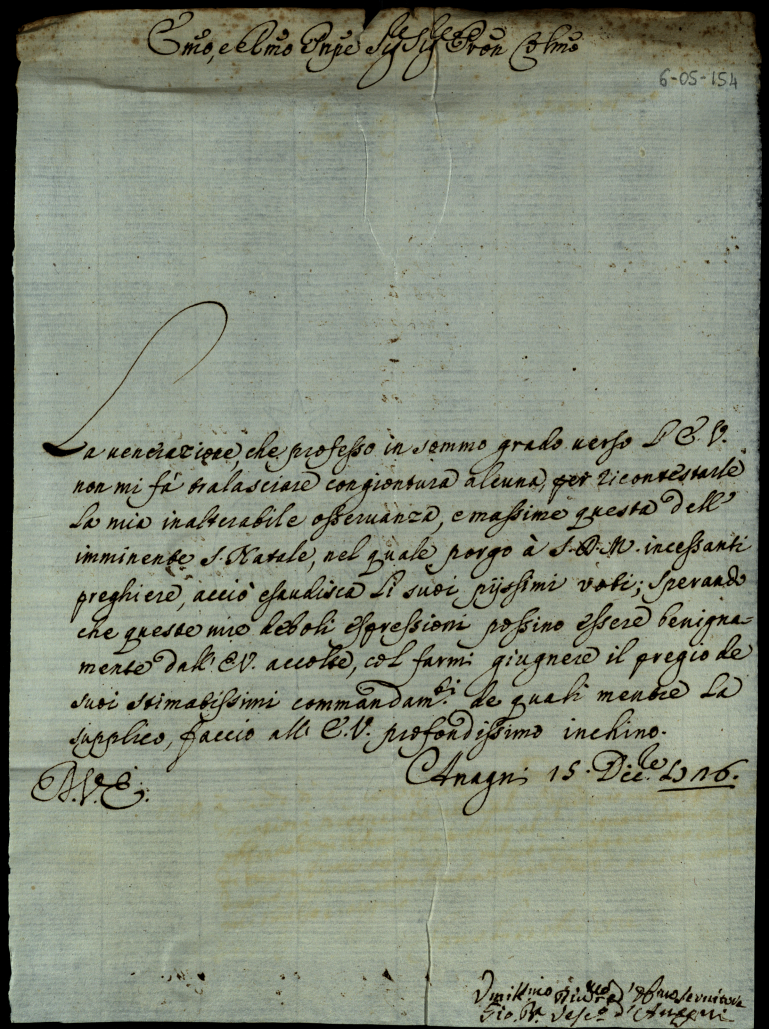 Emo, e Rmo Pnpe Sigre Sigre Pron Colmo
6-05-154
La venerazione, che professo in sommo grado verso L'E.V.
non mi fà tralasciare congiontura alcuna, per ricontestarle
la mia inalterabile osservanza, e massime questa dell'
imminente S. Natale, nel quale porgo à S.D.M. incessanti
preghiere, acciò esaudisca li suoi pijssimi voti; sperando
che queste mie deboli espressioni possino essere benigna=
mente dall'E.V. accolte, col farmi giugnere il pregio de
suoi stimatissimi commandamti. de quali mentre la
supplico, faccio all'E.V. profondissimo inchino.
Anagni 15. Dicre.
D.V.E.
Servitore
Gio. Vesco. d'Anagni